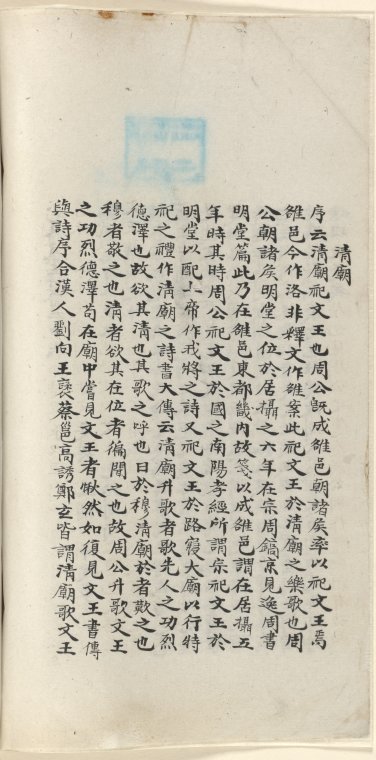 清廟
序云清廟祀文王也周公既成雒邑朝諸矦率以祀文王焉
雒邑今作洛非釋文作雒案此祀文王於清廟之樂歌也周
公朝諸矦明堂之位於居攝之六年在宗周鎬京見逸周書
明堂篇此乃在雒邑東都畿内故箋以成雒邑謂在居攝五
年時其時周公祀文王於國之南陽孝經所謂宗祀文王於
明堂以配上帝作我將之詩又祀文王於路寢大廟以行特
祀之禮作清廟之詩書大傳云清廟升歌者歌先人之功烈
德澤也故欲其清也其歌之呼也曰於穆清廟於者歎之也
穆者敬之也清者欲其在位者徧聞之也故周公升歌文王
之功烈德澤苟在廟中嘗見文王者愀然如復見文王書傳
與詩序合漢人劉向王襃蔡邕高誘鄭玄皆謂清廟歌文王